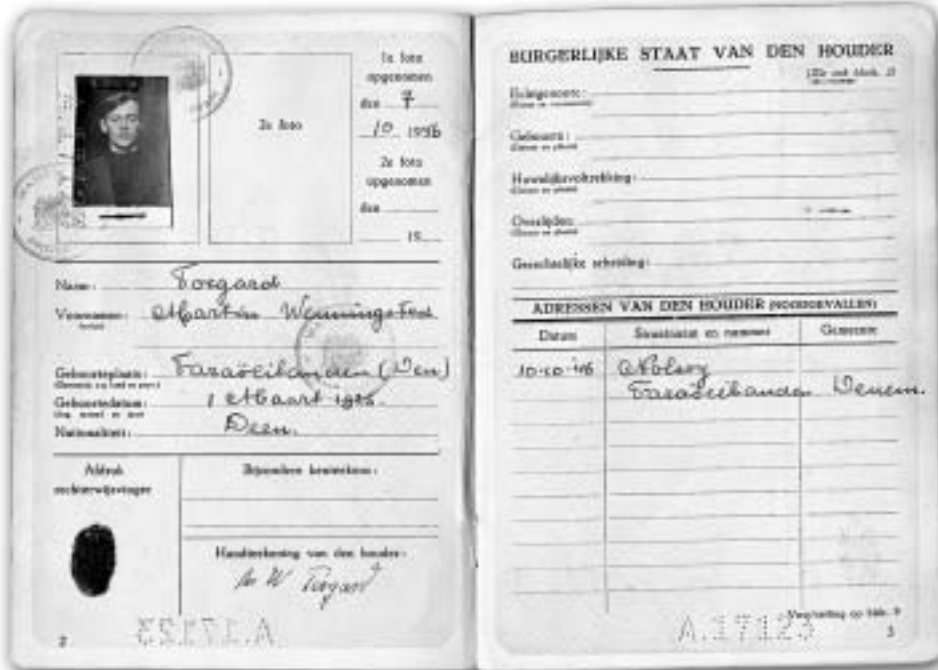 1e foto
opgenomen
den 7
10 1946
2e foto
2e foto
opgenomen
den
19
Naam: Torgard
Voornamen: Martin Wenningsted
Geboorteplaats: Faraöeilanden (Den)
Geboortedatum: 1 Maart 1926.
Nationaliteit: Deen.
Afdruk
rechterwijsvinger
Bijzondere kenteekens:
Handteekening van den houder:
M W Torgard
A.17123
2
BURGERLIJKE STAAT VAN DEN HOUDER
Echtgenoote:
Geboorte:
Huwelijksvoltrekking:
Overlijden:
Gerechtelijke scheiding:
ADRESSEN VAN DEN HOUDER (NOORDERVALLEN)
Datum
Straatnaam en nummer
Gemeente
10-10-'46
Nolsoy
Faraöeilanden Denem.
Voortzetting op blz. 9
A.17123
3